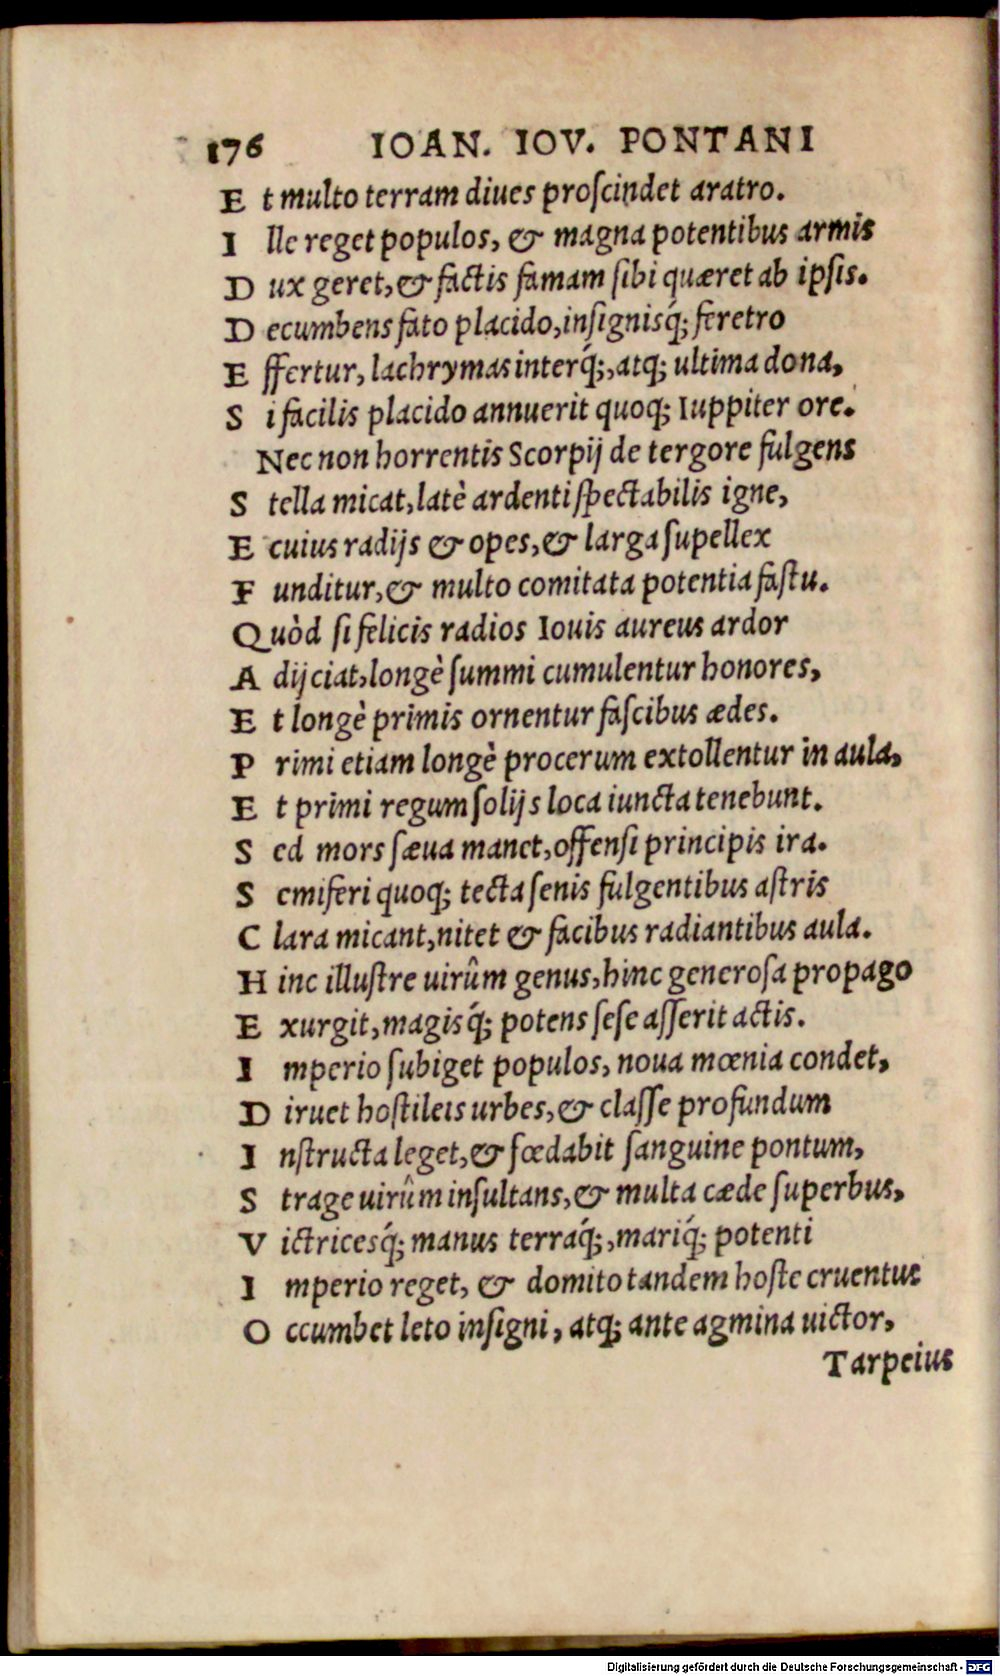 176 IOAN. IOV. PONTANI
Et multo terram diues proscindet aratro.
Ille reget populos, & magna potentibus armis
Dux geret, & factis famam sibi quæret ab ipsis.
Decumbens fato placido, insignisq́; feretro
Effertur, lachrymas interq́;, atq; ultima dona,
Si facilis placido annuerit quoq; Iuppiter ore.
Nec non horrentis Scorpij de tergore fulgens
Stella micat, latè ardenti spectabilis igne,
E cuius radijs & opes, & larga supellex
Funditur, & multo comitata potentia fastu.
Quòd si felicis radios Iouis aureus ardor
Adijciat, longè summi cumulentur honores,
Et longè primis ornentur fascibus ædes.
Primi etiam longè procerum extollentur in aula,
Et primi regum solijs loca iuncta tenebunt.
Sed mors sæua manet, offensi principis ira.
Semiferi quoq; tecta senis fulgentibus astris
Clara micant, nitet & facibus radiantibus aula.
Hinc illustre uirûm genus, hinc generosa propago
Exurgit, magisq́; potens sese asserit actis.
Imperio subiget populos, noua mœnia condet,
Diruet hostileis urbes, & classe profundum
Instructa leget, & fœdabit sanguine pontum,
Strage uirûm insultans, & multa cæde superbus,
Victricesq́; manus terraq́;, mariq́; potenti
Imperio reget, & domito tandem hoste cruentus
Occumbet leto insigni, atq; ante agmina uictor,
Tarpeius
Digitalisierung gefördert durch die Deutsche Forschungsgemeinschaft - DFG